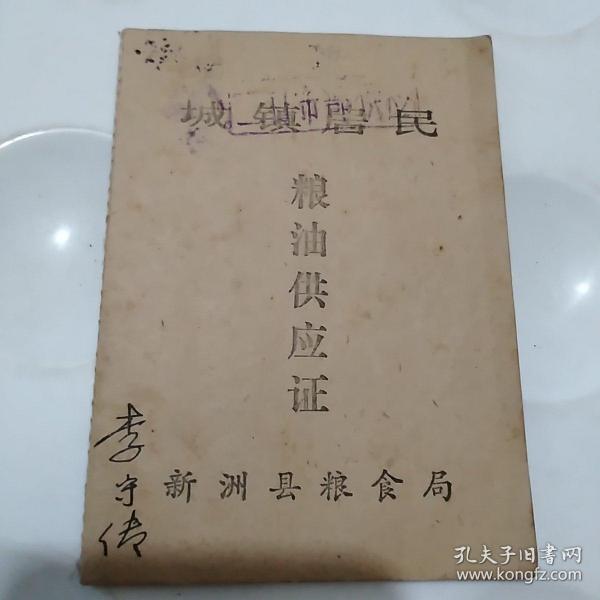 城镇居民
粮油供应证
新洲县粮食局
李守传
孔夫子旧书网
www.kongfz.com